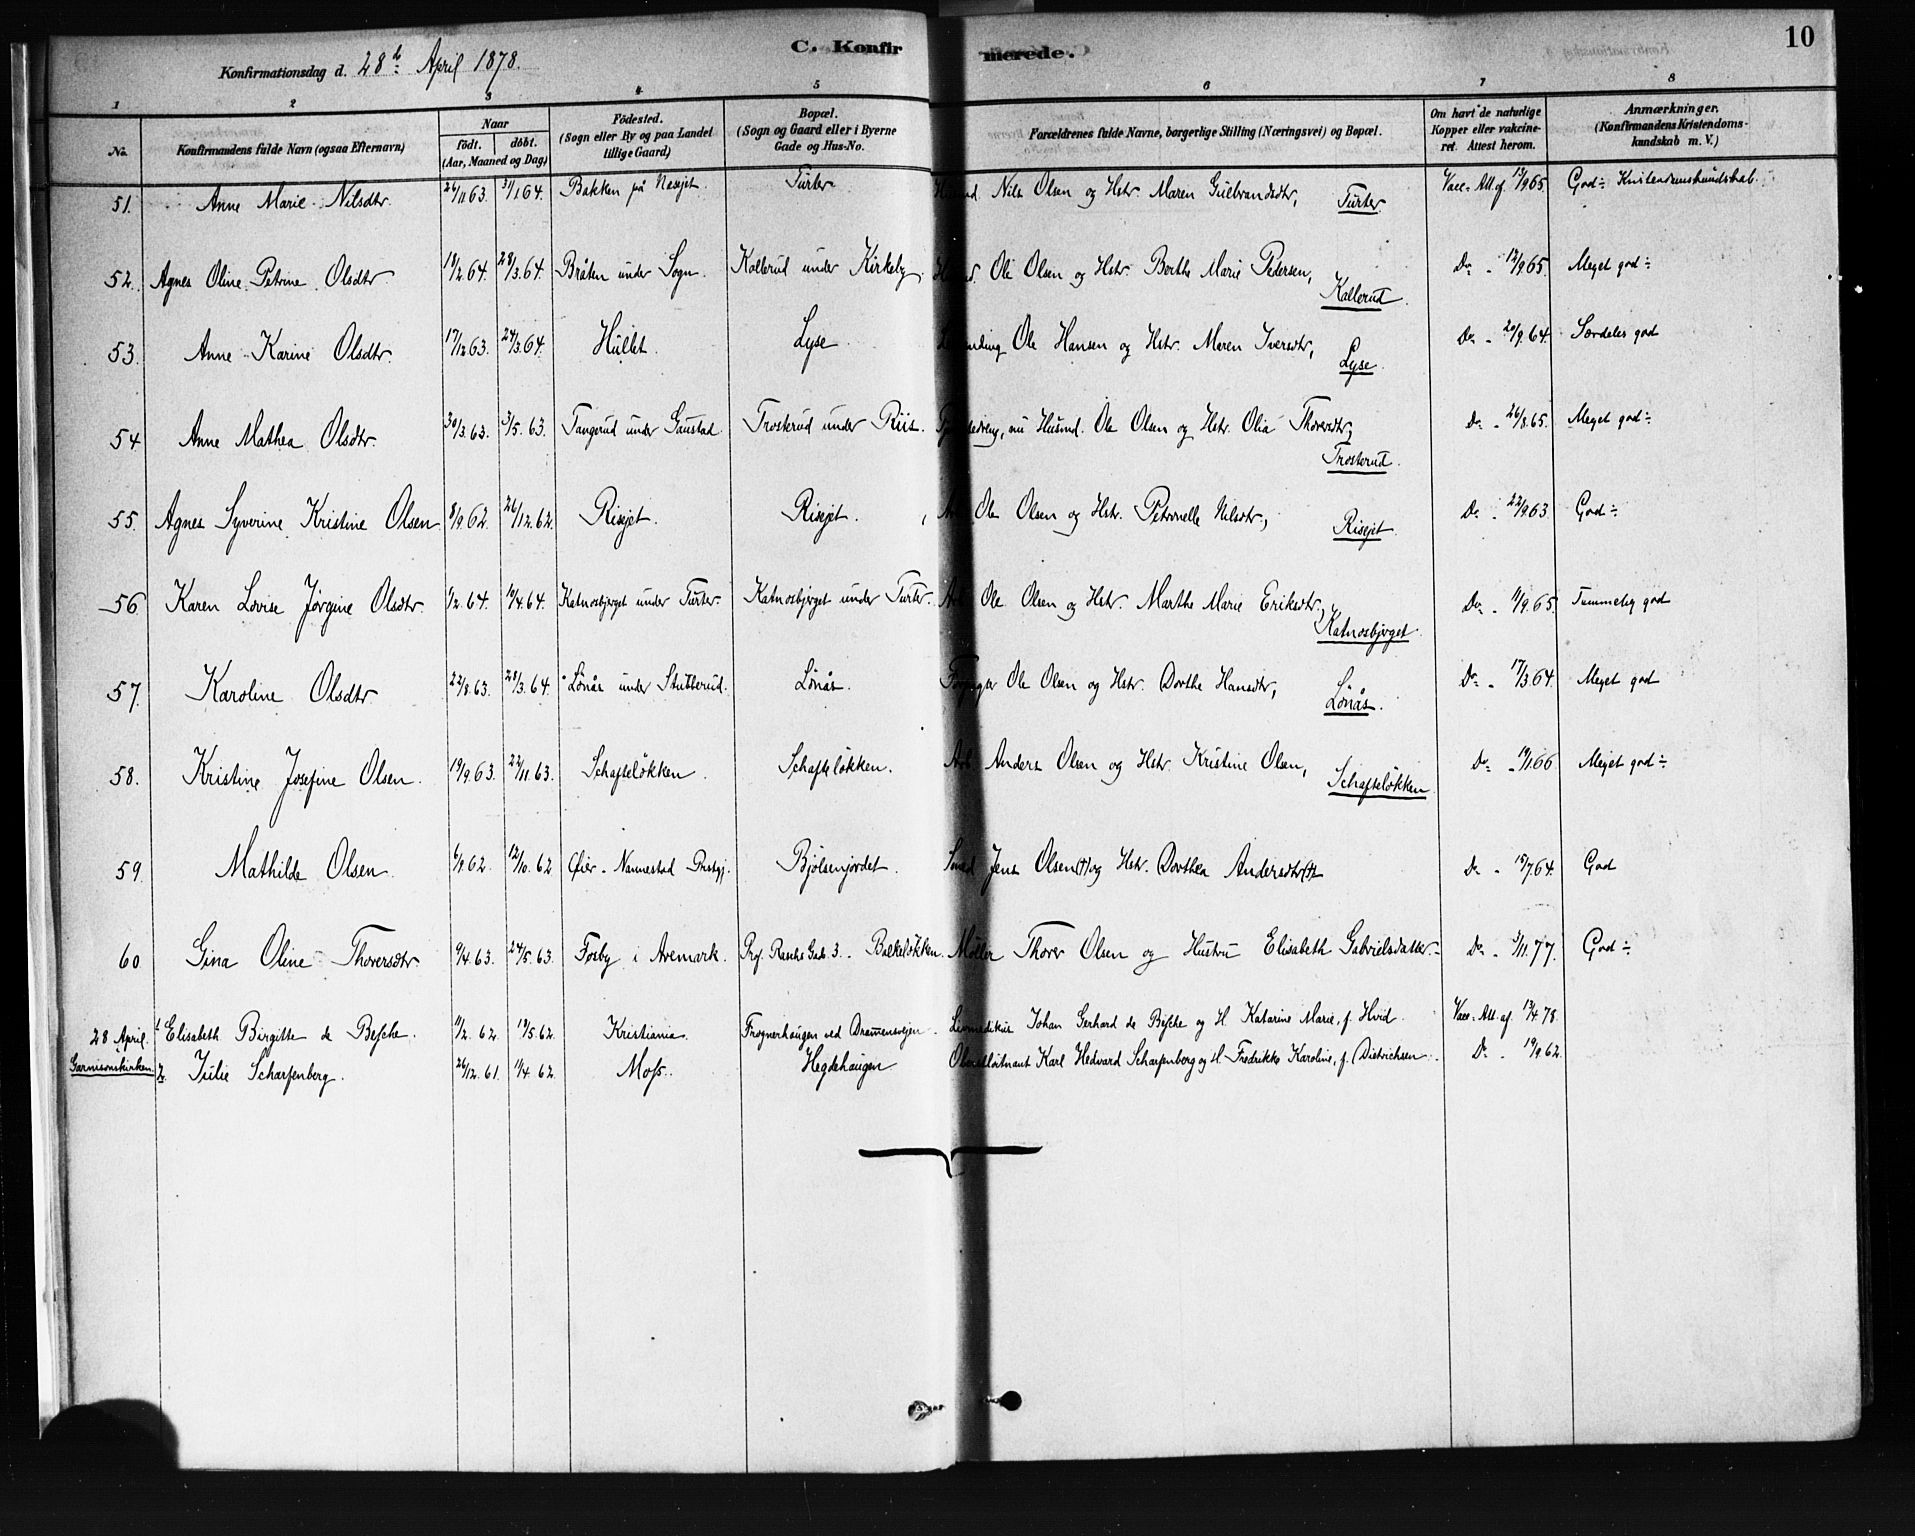 10
C. Konfirmerede.
Konfirmationsdag d. 28de April 1878.
1 2 3 4 5 6 7 8
No. Konfirmandens fulde Navn (ogsaa Efternavn) Naar født. døbt. (Aar, Maaned og Dag) Fødested. (Sogn eller By og paa Landet tillige Gaard) Bopæl. (Sogn og Gaard eller i Byerne Gade og Hus-No. Forældrenes fulde Navne, borgerlige Stilling (Næringsvei) og Bopæl. Om havt de naturlige Kopper eller vakcineret. Attest herom. Anmærkninger. (Konfirmandens Kristendomskundskab m. V.)
51. Anne Marie Nilsdtr. 26/11 63. 31/1 64. Bakken på Nesejet. Turter Nils Olsen og Hstr. Maren Gulbrandsdtr, Turter. Vacc. Att. af 13/9 65. God÷ Kristendomskundskab.
52. Agnes Oline Petrine Olsdtr 19/2 64. 28/3 64. Bråten under Sogn. Kallerud under Kirkeby. Ole Olsen og Hstr. Berthe Marie Pedersen, Kallerud. Do - 12/9 65. Meget god÷
53. Anne Karine Olsdtr. 17/12 63. 24/3 64. Hullet. Lyse Ole Hansen og Hstr. Maren Iversdtr, Lyse. Do - 20/9 64. Særdeles god
54. Anne Mathea Olsdtr. 30/3 63. 3/5 63. Tangerud under Gaustad. Trosterud under Riis. nu Husmd. Ole Olsen og Hstr. Olia Thoresdtr, Trosterud. Do - 26/8 65. Meget god÷
55. Agnes Syverine Kristine Olsen 8/9 62. 26/12 62. Risejet. Risejet. Ole Olsen og Hstr. Petronelle Nilsdtr, Risejet. Do - 22/9 63. God÷
56. Karen Lovise Jørgine Olsdtr. /2 64. 10/4 64. Katnosbjerget under Turter. Katnosbjerget under Turter. Ole Olsen og Hstr. Marthe Marie Eriksdtr, Katnosbjerget. Do - 11/9 65. Temmelig god
57. Karoline Olsdtr 22/8 63. 28/3 64. Lønås under Stubberud. Lønås. Ole Olsen og Hstr. Dorthe Hansdtr, Lønås. Do - 17/3 64. Meget god
58. Kristine Josefine Olsen. 19/9 63. 22/11 63. Schafteløkken. Schafteløkken. Anders Olsen og Hstr. Kristine Olsen, Schafteløkken. Do - 19/1 66. Meget god÷
59. Mathilde Olsen. 6/9 62. 12/10 62. Øier - Nannestad Prstgj. Bjølsenjordet. Smed Jens Olsen (†) og Hstr. Dorthea Andersdtr (†) Do - 15/7 64. God
60. Gina Oline Thoresdtr. 9/4 63. 24/5 63. Fosby i Aremark. Prof. Raschs Gade 3. Balkeløkken. Møller Thorer Olsen og Hustru Elisabeth Gabrielsdatter. Do - 3/11 77. God÷
28 April. Garnisonskirken. 1 Elisabeth Birgitte de Besche. 11/2 62. 17/5 62. Kristiania Frognerhaugen ved Dramensvejen. Livmedikus Johan Gerhard de Besche og H. Katarine Marie, f. Hvid. Vacc. Att. af 13/4 78.
2. Julie Scharfenberg. 26/12 61. 11/4 62. Moss. Hegdehaugen Oberstløitnant Karl Hedvard Scharfenberg og H. Fredrikke Karoline, f. Dietrichsen. Do - 19/9 62.